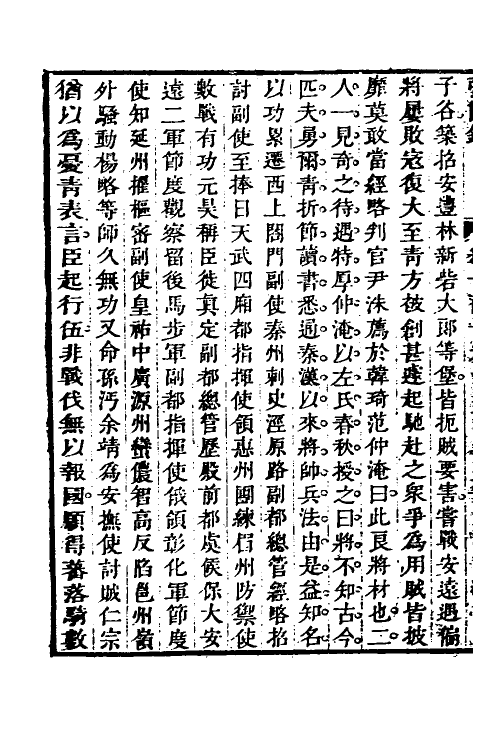 子谷築招安豐林新砦大郎等堡皆扼賊要害嘗戰安遠遇
將屢敗寇復大至青方被創甚遽起馳赴之衆爭為用賊皆披
靡莫敢當經略判官尹洙薦於韓琦范仲淹曰此良將材也二
人一見奇之待遇特厚仲淹以左氏春秋授之曰將不知古今
匹夫勇爾青折節讀書悉通秦漢以來將帥兵法由是益知名
以功累遷西上閤門副使秦州刺史涇原路副都總管經略招
討副使至捧日天武四廂都指揮使領惠州團練眉州防禦使
數戰有功元昊稱臣徙真定副都總管歷殿前都虞候保大安
遠二軍節度觀察留後馬步軍副都指揮使俄領彰化軍節度
使知延州擢樞密副使皇祐中廣源州蠻儂智高反陷邕州嶺
外騷動楊略等師久無功又命孫沔余靖為安撫使討賊仁宗
猶以為憂青表言臣起行伍非戰伐無以報國願得蕃落騎數